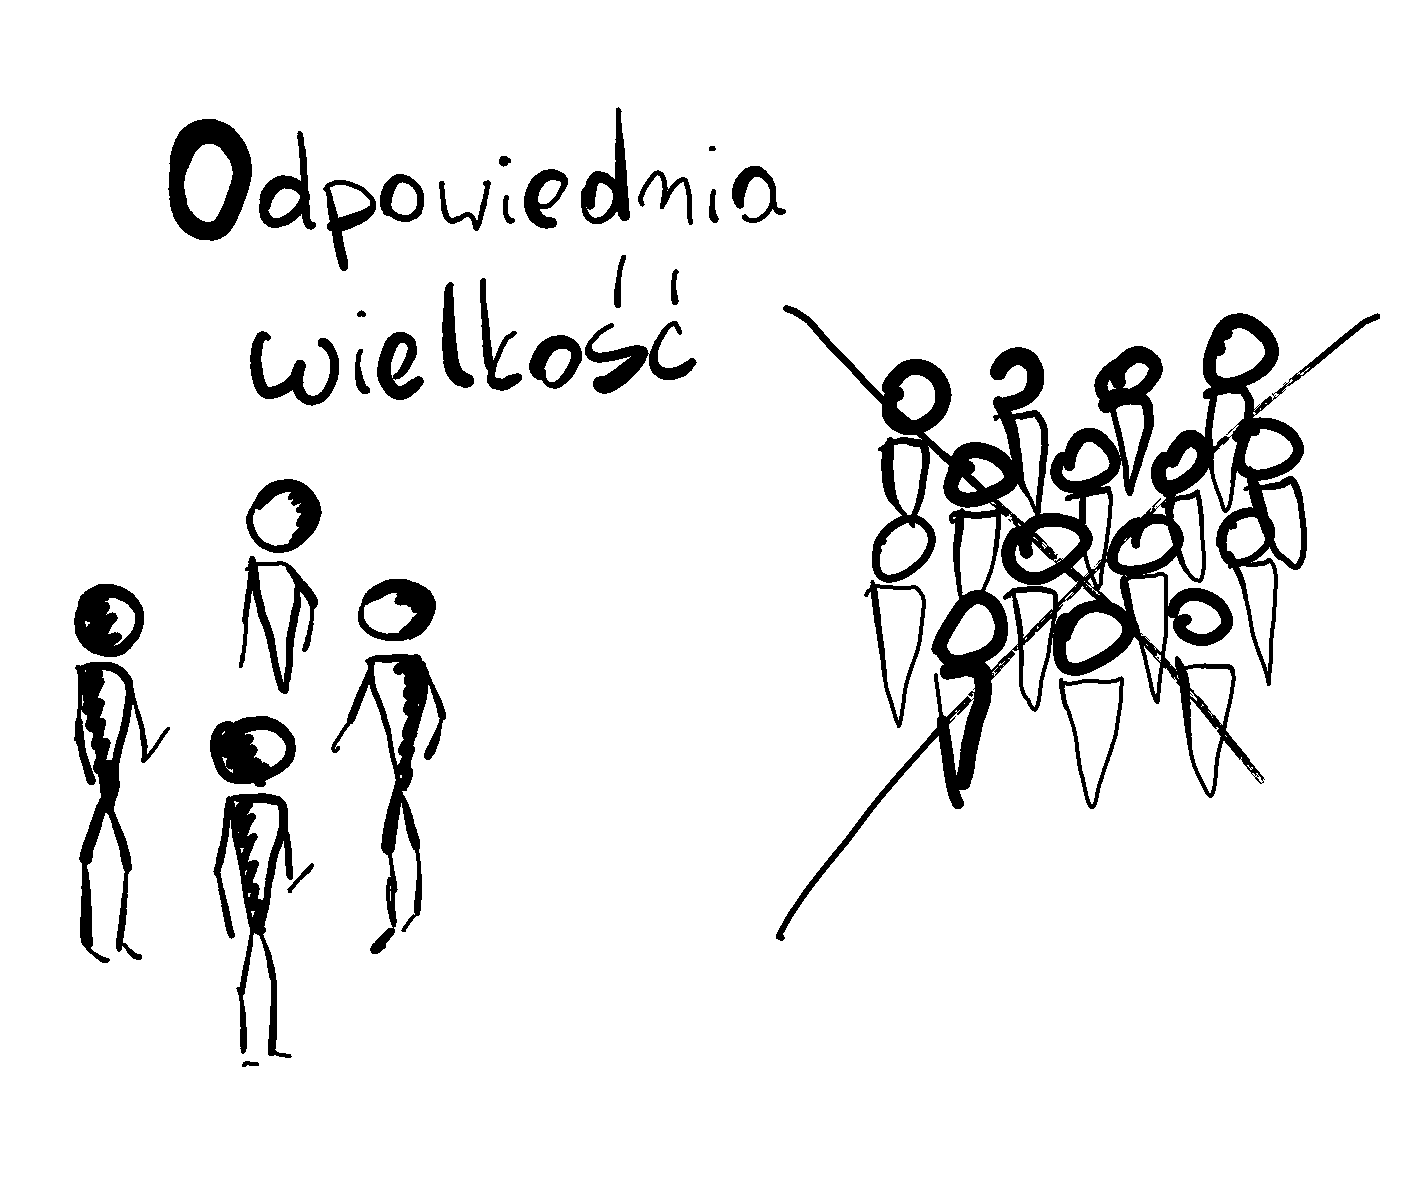 Odpowiednia
wielkość